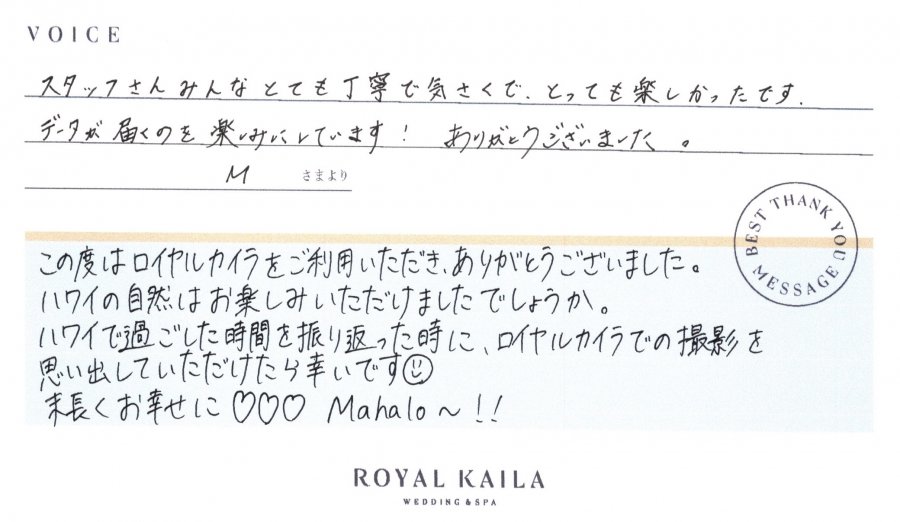 VOICE
スタッフさんみんなとても丁寧で気さくで、とっても楽しかったです.
データが届くのを楽しみにしています! ありがとうございました。
M さまより
BEST THANK YOU MESSAGE
この度はロイヤルカイラをご利用いただき、ありがとうございました。
ハワイの自然はお楽しみいただけましたでしょうか。
ハワイで過ごした時間を振り返った時に、ロイヤルカイラでの撮影を
思い出していただけたら幸いです☺
末長くお幸せに♡♡♡ Mahalo~!!
ROYAL KAILA
WEDDING & SPA